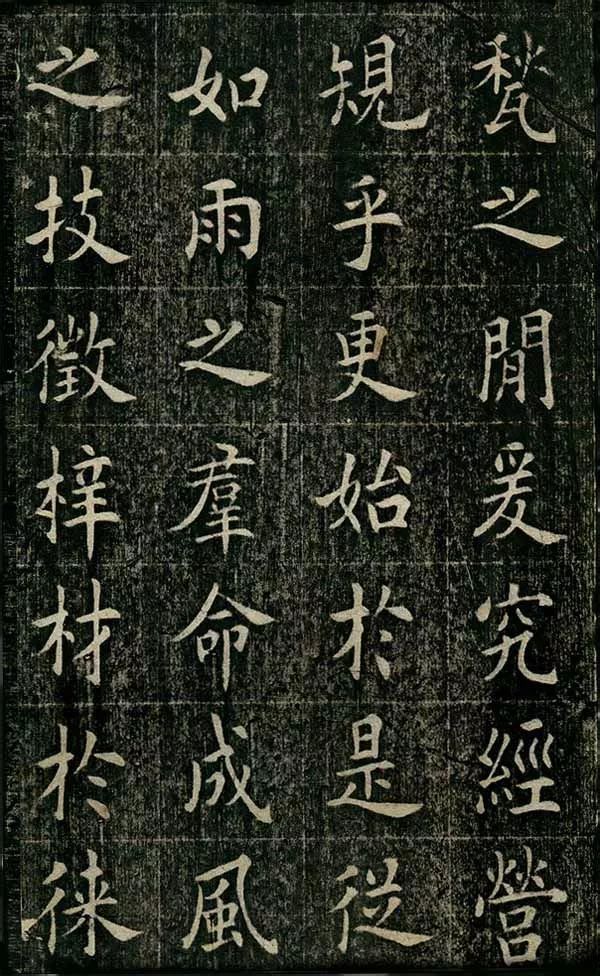 甃之閒爰究經營
規乎更始於是從
如雨之羣命成風
之技徵梓材於徠